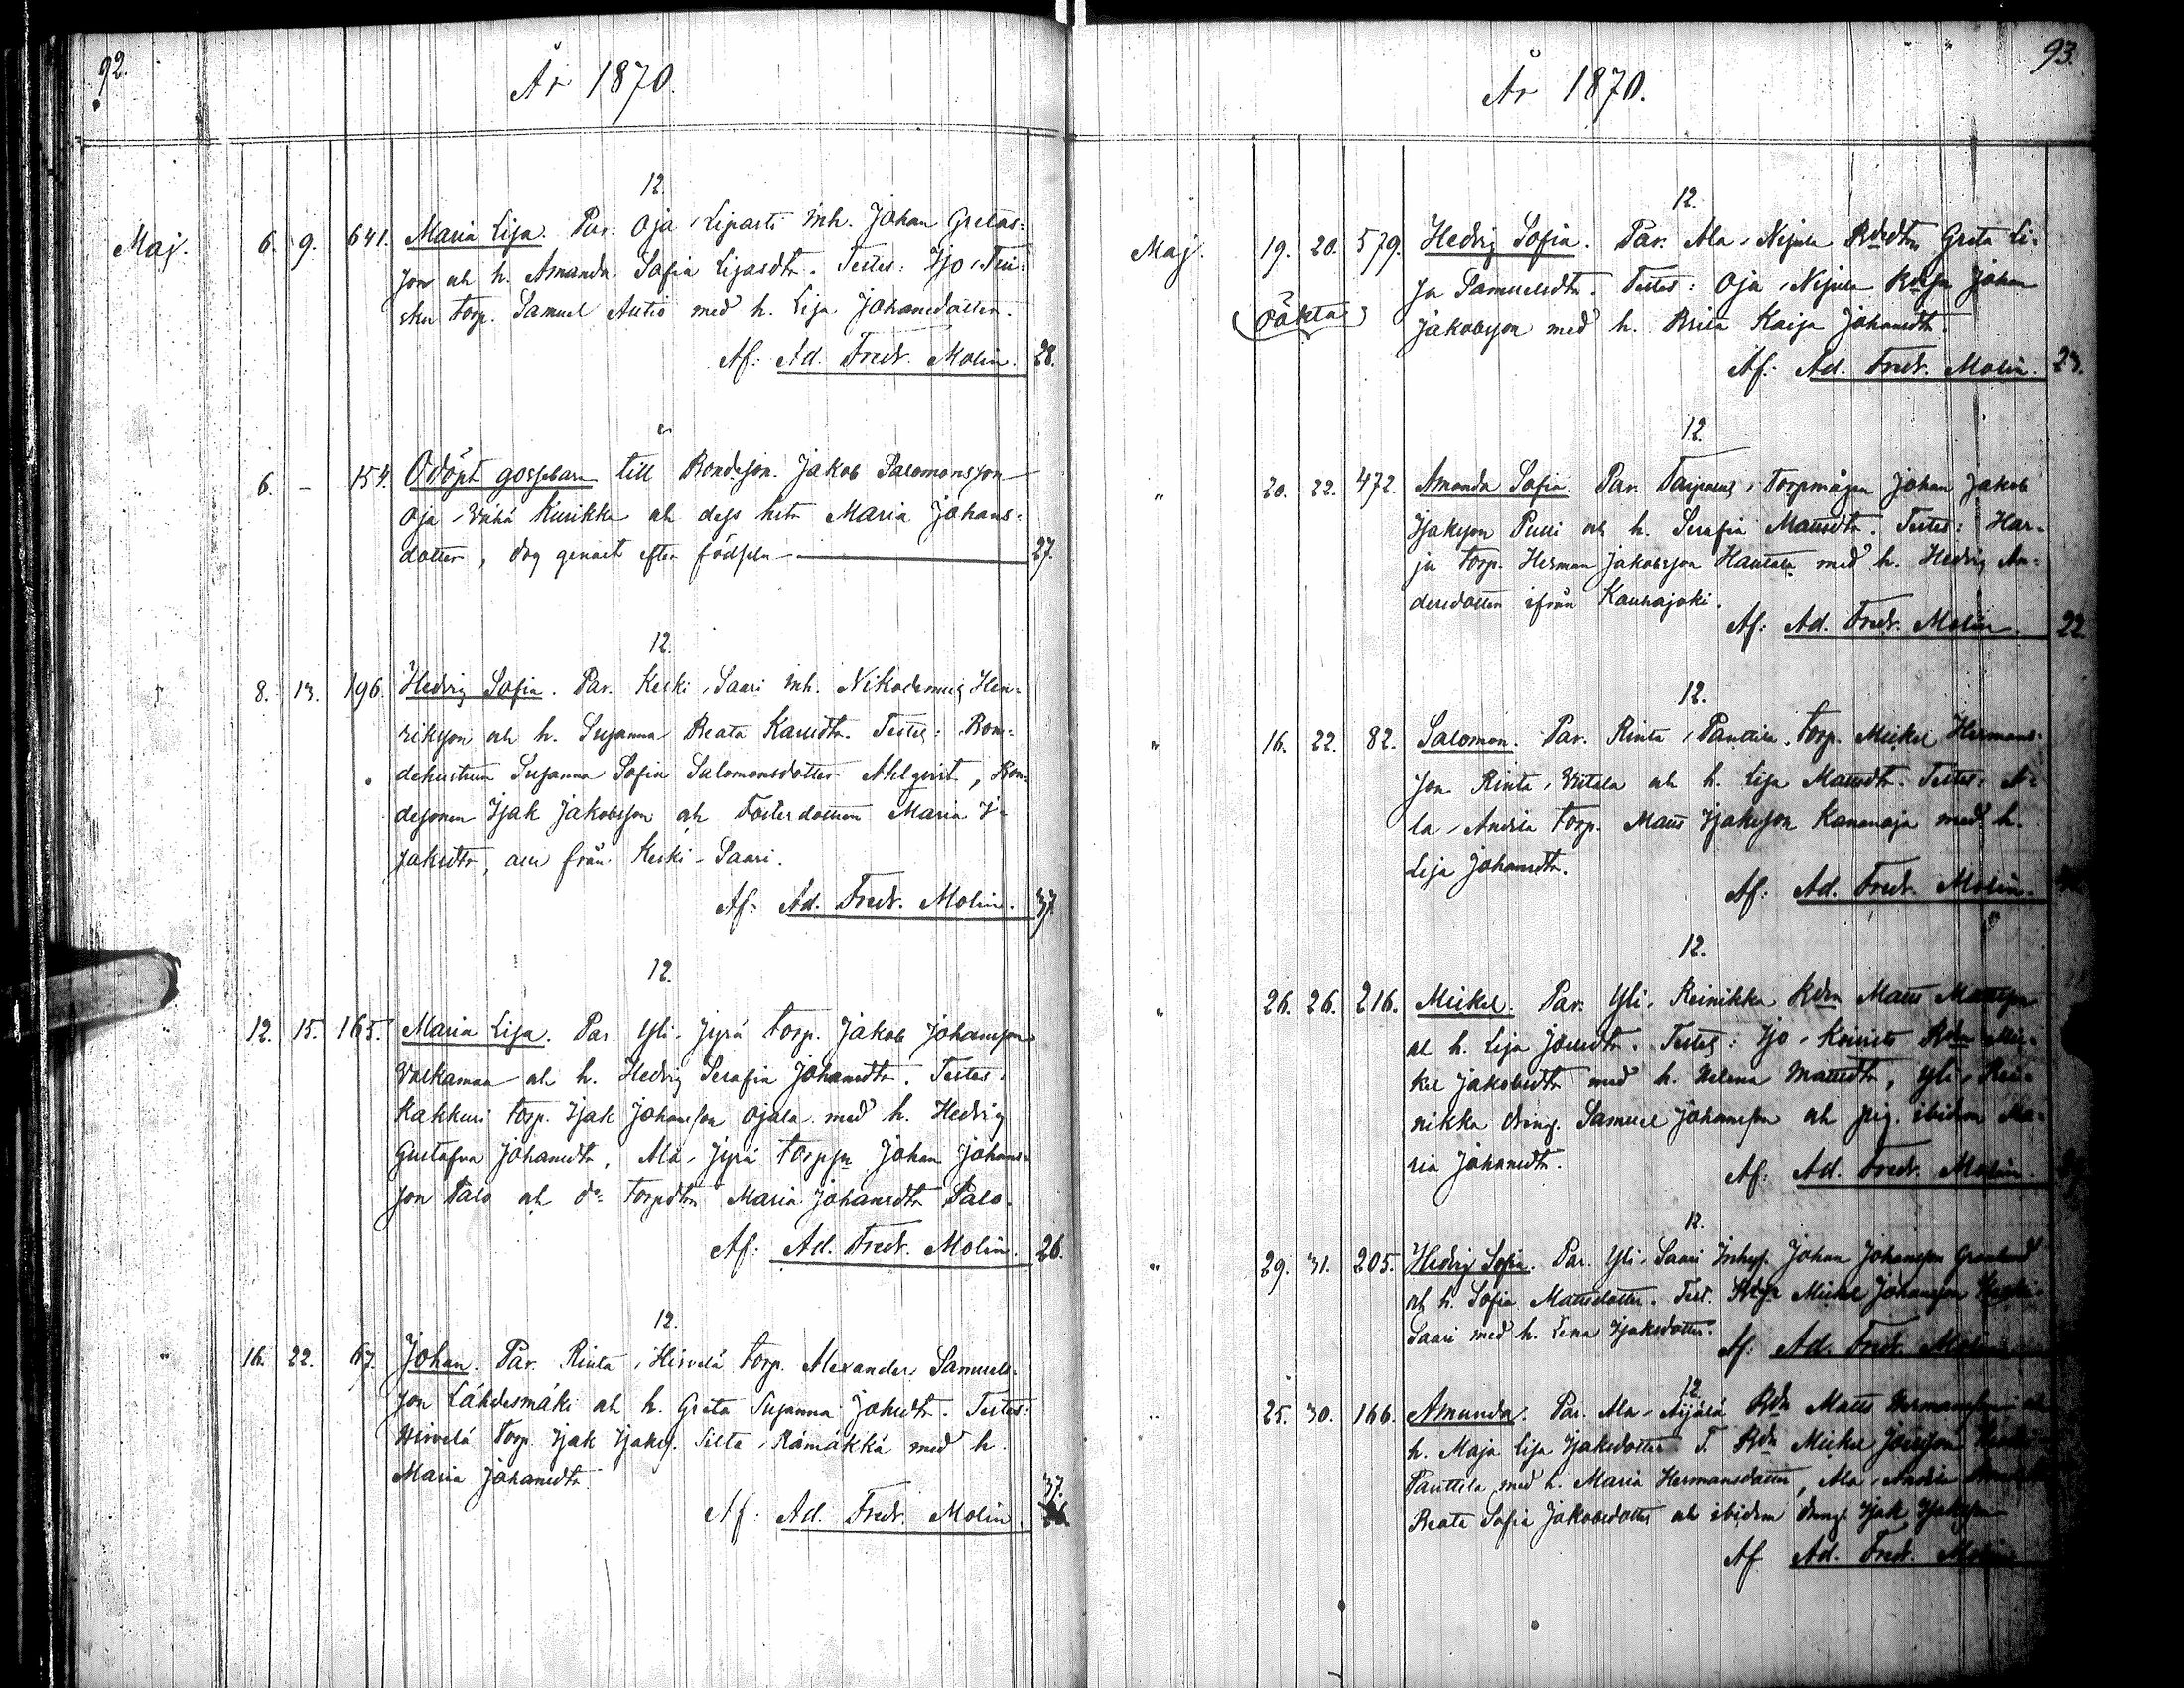 92.
År 1870.
12.
Maj. 6. 9. 641. Maria Lisa. Par. Oja, Liparti inh. Johan Gretas-
son och h. Amanda Sofia Lisasdtr. Testes: Iso,
torp. Samuel Autio med h. Lisa Johansdotter.
Af: Ad. Fredr. Molin. 28.
"
6. – 154. Odöpt gossebarn till Bondeson. Jakob Salomonsson
Oja, Vähä Kurikka och dess hstr Maria Johans-
dotter, dog genast efter födseln 27.
12.
" 8. 13. 196. Hedvig Sofia. Par. Keski, Saari inh. Nikodemus Hen-
riksson och h. Susanna Beata Karlsdtr. Testes: Bon-
dehustrun Susanna Sofia Salomonsdotter Ahlqvist, Bon-
desonen Isak Jakobsson och Fosterdottren Maria I-
saksdtr, alla från Keski-Saari.
Af: Ad. Fredr. Molin. 37.
12.
12. 15. 165. Maria Lisa. Par. Yli, Jyrä torp. Jakob Johansson
Valkamaa och h. Hedvig Serafia Johansdtr. Testes:
Kakkuri torp. Isak Johansson Ojala med h. Hedvig
Gustafva Johansdtr, Ala, Jyrä torpson Johan Johans-
son Palo och do torpdtr Maria Johansdtr Palo.
Af: Ad. Fredr. Molin. 26.
12.
" 16. 22. 67. Johan. Par. Rinta, Hirvelä torp. Alexander Samuels-
son Lähdesmäki och h. Greta Susanna Johsdtr. Testes:
Hirvelä torp. Isak Isakss. Silta, Rämäkkä med h.
Maria Johansdtr.
37.
Af: Ad. Fredr. Molin.
93.
År 1870.
12.
Maj. 19. 20. 579. Hedvig Sofia. Par. Ala, Nisula Bdedtr Greta Li-
(Oäkta) sa Samuelsdtr. Testes: Oja, Nisula Bdeson Johan
Jakobsson med h. Brita Kaisa Johansdtr.
Af: Ad. Fredr. Molin. 23.
12.
" 20. 22. 472. Amanda Sofia. Par. Taipalus, Torpmågen Johan Jakob
Isaksson Pulli och h. Serafia Mattsdtr. Testes: Har-
ju torp. Herman Jakobsson Hautala med h. Hedvig An-
dersdotter ifrån Kauhajoki.
Af: Ad. Fredr. Molin. 22.
12.
" 16. 22. 82. Salomon. Par. Rinta, Panttila, torp. Mickel Hermans-
son Rinta, Viitala och h. Lisa Mattsdtr. Testes: A-
la, Andila torp. Matts Isaksson Kananoja med h.
Lisa Johansdtr.
Af: Ad. Fredr. Molin.
12.
" 26. 26. 216. Mickel. Par. Yli, Reinikka Bdn Matts Mattsson
och h. Lisa Joelsdtr. Testes: Iso, Koivisto Bdn Mic-
kel Jakobsdtr med h. Helena Mattsdtr, Yli, Rei-
nikka dreng. Samuel Johansson och pig. ibidem Ma-
ria Johansdtr.
Af: Ad. Fredr. Molin.
12.
" 29. 31. 205. Hedvig Sofia. Par. Yli, Saari Inhys. Johan Johansson Granlund
och h. Sofia Mattsdotter. Test. Bdeson Mickel Johansson Keski-
Saari med h. Lena Isaksdotter.
Af: Ad. Fredr. Molin
12.
" 25. 30. 166. Amanda. Par. Ala, Äijälä Bdn Matts Hermansson och
h. Maja Lisa Isaksdotter T. Bdn Mickel
Panttila med h. Maria Hermansdotter, Ala, Andila
Beata Sofia Jakobsdotter och ibidem dreng. Isak Isaksson
Af Ad. Fredr. Molin